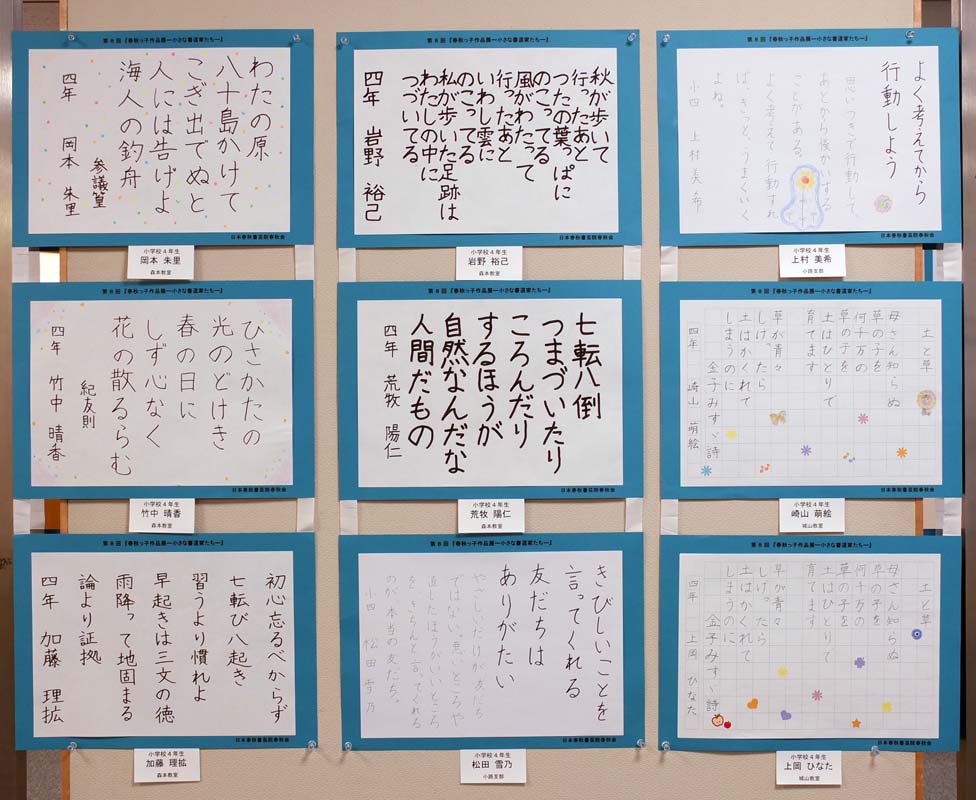 第8回『春秋っ子作品展―小さな書道家たち―』
わたの原
八十島かけて
こぎ出でぬと
人には告げよ
海人の釣舟
参議篁
四年 岡本 朱里
日本春秋書芸院春秋会
小学校4年生
岡本 朱里
森本教室
第8回『春秋っ子作品展―小さな書道家たち―』
秋が歩いて
行ったあと
つたの葉っぱに
のこってる
風がわたって
行ったあと
いわし雲に
のこってる
私が歩いた足跡は
わたしの中に
つづいてる
四年 岩野 裕己
日本春秋書芸院春秋会
小学校4年生
岩野 裕己
森本教室
第8回『春秋っ子作品展―小さな書道家たち―』
よく考えてから
行動しよう
思いつきで行動して、
あとから後かいする
ことがある。
よく考えて行動すれ
ば、きっと、うまくいく
よね。
小四 上村 美希
日本春秋書芸院春秋会
小学校4年生
上村 美希
小路支部
第8回『春秋っ子作品展―小さな書道家たち―』
ひさかたの
光のどけき
春の日に
しず心なく
花の散るらむ
紀友則
四年 竹中 晴香
日本春秋書芸院春秋会
小学校4年生
竹中 晴香
森本教室
第8回『春秋っ子作品展―小さな書道家たち―』
七転八倒
つまづいたり
ころんだり
するほうが
自然なんだな
人間だもの
四年 荒牧 陽仁
日本春秋書芸院春秋会
小学校4年生
荒牧 陽仁
森本教室
第8回『春秋っ子作品展―小さな書道家たち―』
土と草
母さん知らぬ
草の子を
何千万の
草の子を
土はひとりで
育てます
草が青々
しげったら
土はかくれて
しまうのに
金子みすゞ詩
四年 崎山 萌絵
日本春秋書芸院春秋会
小学校4年生
崎山 萌絵
城山教室
第8回『春秋っ子作品展―小さな書道家たち―』
初心忘るべからず
七転び八起き
習うより慣れよ
早起きは三文の徳
雨降って地固まる
論より証拠
四年 加藤 理拡
日本春秋書芸院春秋会
小学校4年生
加藤 理拡
森本教室
第8回『春秋っ子作品展―小さな書道家たち―』
きびしいことを
言ってくれる
友だちは
ありがたい
やさしいだけが友だち
ではない。悪いところや
直したほうがいいところ
を、きちんと言ってくれる
のが本当の友だち。
小四 松田 雪乃
日本春秋書芸院春秋会
小学校4年生
松田 雪乃
小路支部
第8回『春秋っ子作品展―小さな書道家たち―』
土と草
母さん知らぬ
草の子を
何千万の
草の子を
土はひとりで
育てます
草が青々
しげったら
土はかくれて
しまうのに
金子みすゞ詩
四年 上岡 ひなた
日本春秋書芸院春秋会
小学校4年生
上岡 ひなた
城山教室